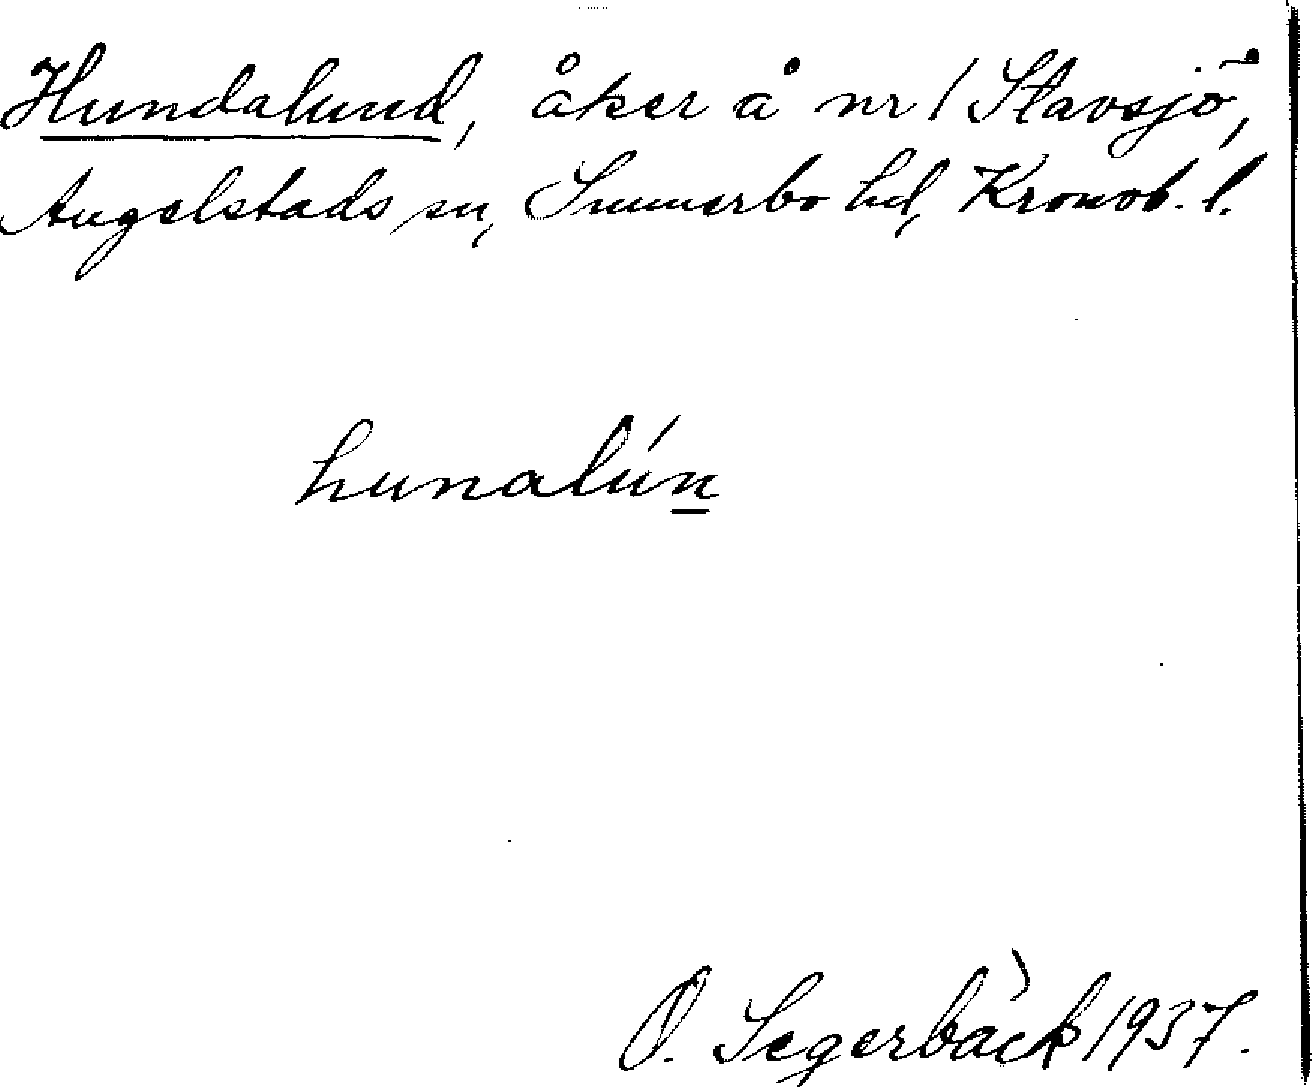 Hundalund, åker å nr 1 Stavsjö,
Angelstads sn, Sunnerbo hd, Kronob. l.
hunalún
O. Segerbäck 1937.